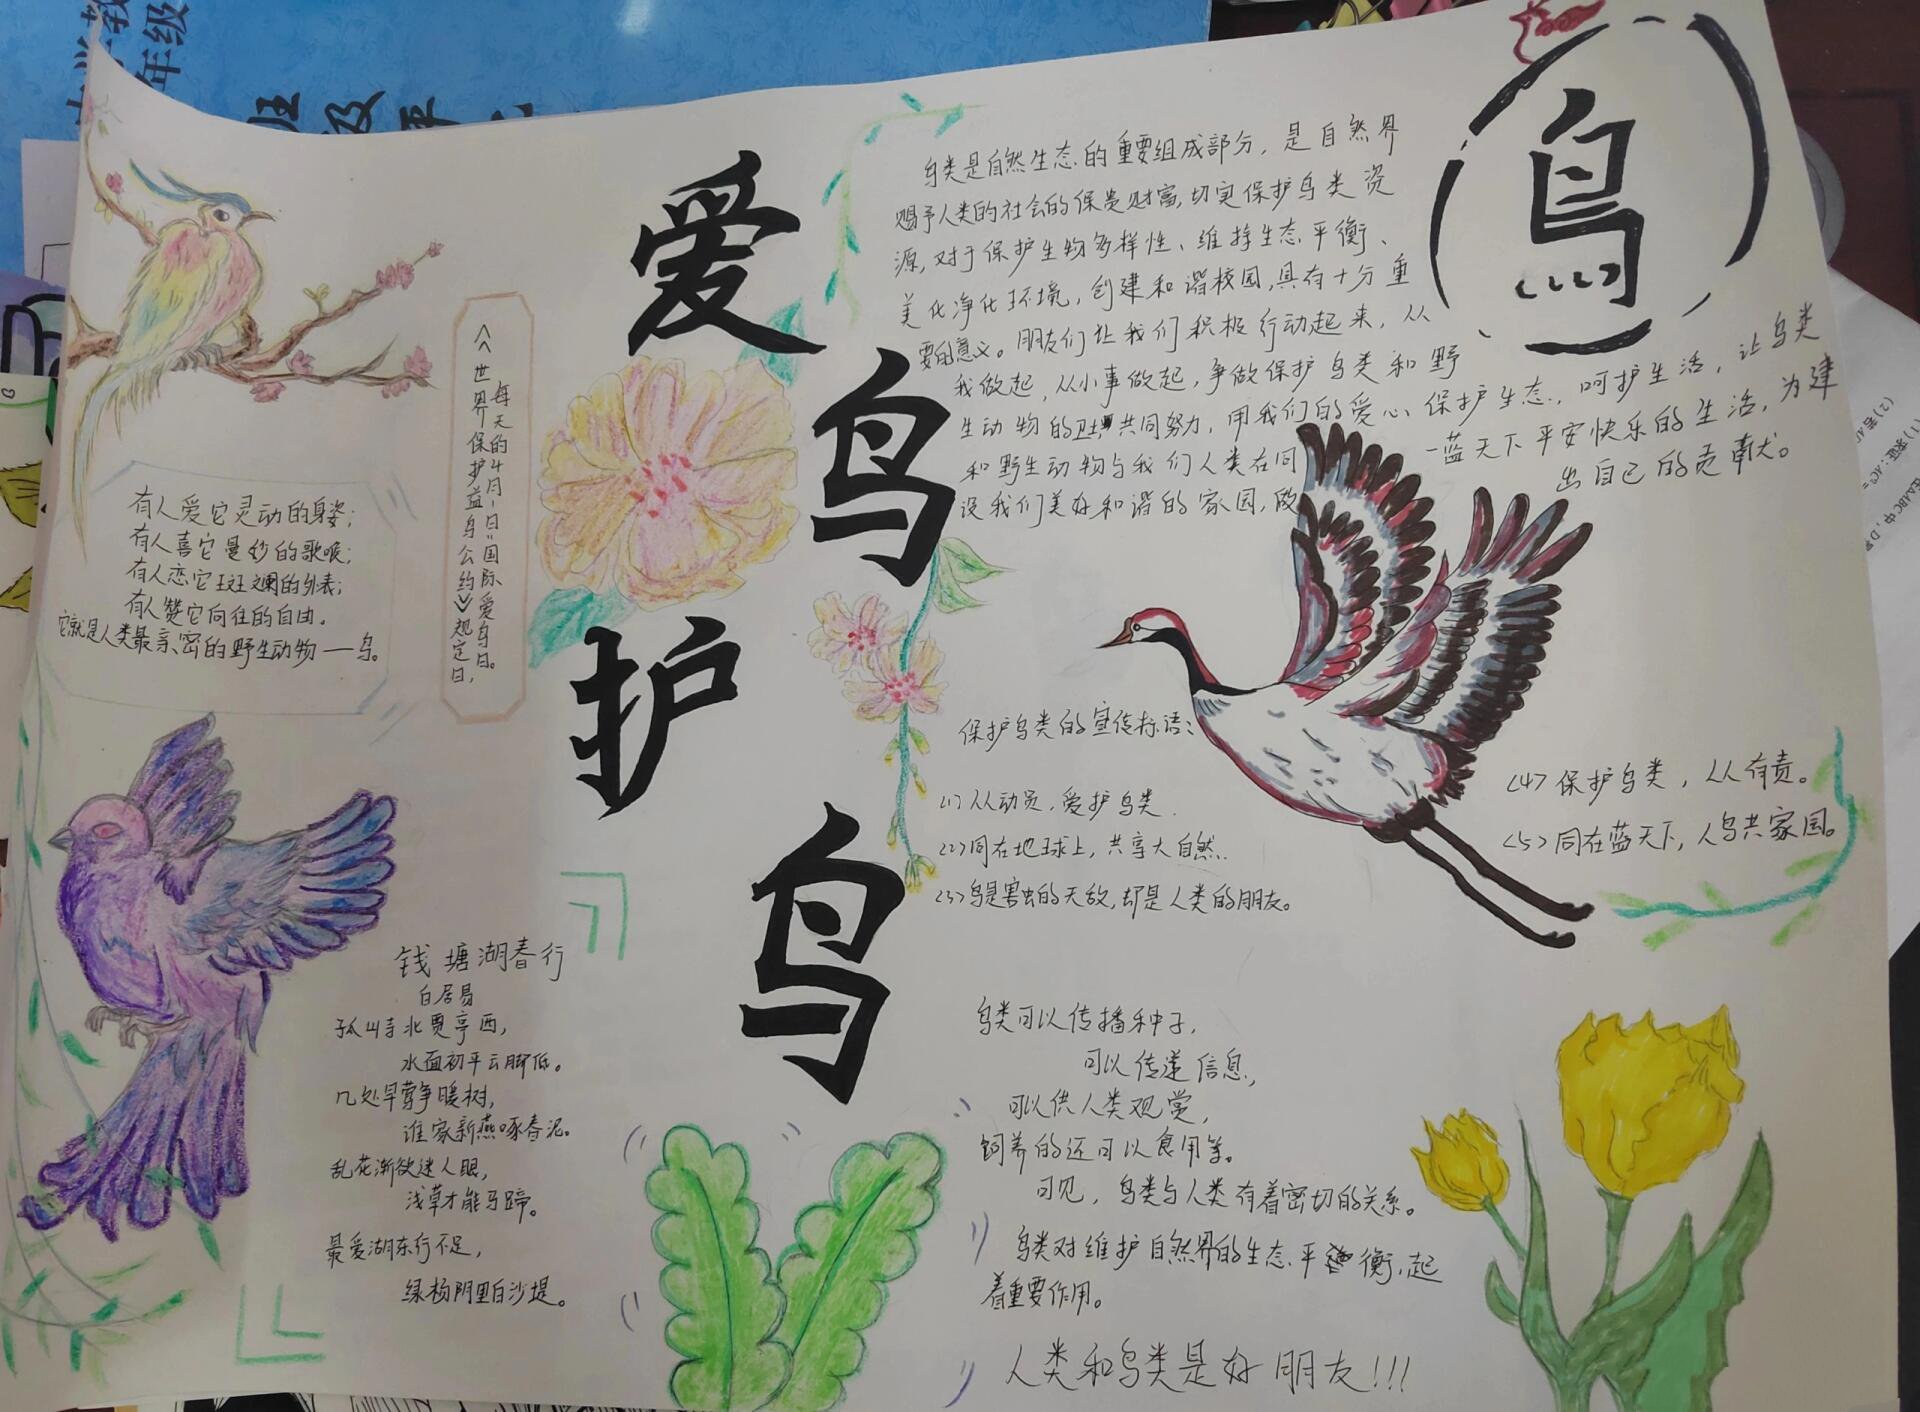 爱鸟护鸟
(鸟)
鸟类是自然生态的重要组成部分，是自然界
赐予人类的社会的保贵财富,切实保护鸟类资
源,对于保护生物多样性、维持生态平衡、
美化净化环境，创建和谐校园,具有十分重
要的意义。朋友们让我们积极行动起来，从
我做起,从小事做起,争做保护鸟类和野
生动物的卫士,共同努力,用我们的爱心、保护生态,呵护生活，让鸟类
和野生动物与我们人类在同一蓝天下平安快乐的生活,为建
设我们美好和谐的家园,做出自己的贡献。
每天的4月1日"国际爱鸟日。
《世界保护益鸟公约》规定日,
有人爱它灵动的身姿;
有人喜它曼妙的歌喉;
有人恋它斑斓的外表;
有人赞它向往的自由.
它就是人类最亲密的野生动物——鸟。
保护鸟类的宣传标语:
(1)人从动员,爱护鸟类.
(2)同在地球上,共享大自然.
(3)鸟是害虫的天敌,却是人类的朋友。
(4)保护鸟类，人人有责。
(5)同在蓝天下,人鸟共家园。
钱塘湖春行
白居易
孤山寺北贾亭西,
水面初平云脚低。
几处早莺争暖树,
谁家新燕啄春泥。
乱花渐欲迷人眼,
浅草才能马蹄。
最爱湖东行不足,
绿杨阴里白沙堤。
鸟类可以传播种子,
可以传递信息,
可以供人类观赏,
饲养的还可以食用等。
可见，鸟类与人类有着密切的关系。
鸟类对维护自然界的生态平衡,起
着重要作用。
人类和鸟类是好朋友!!!